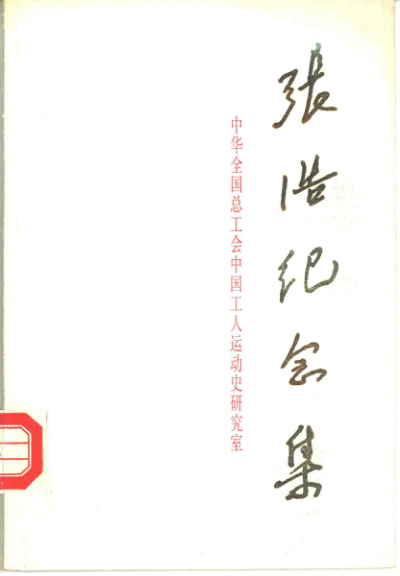 張浩纪念集
中华全国总工会中国工人运动史研究室